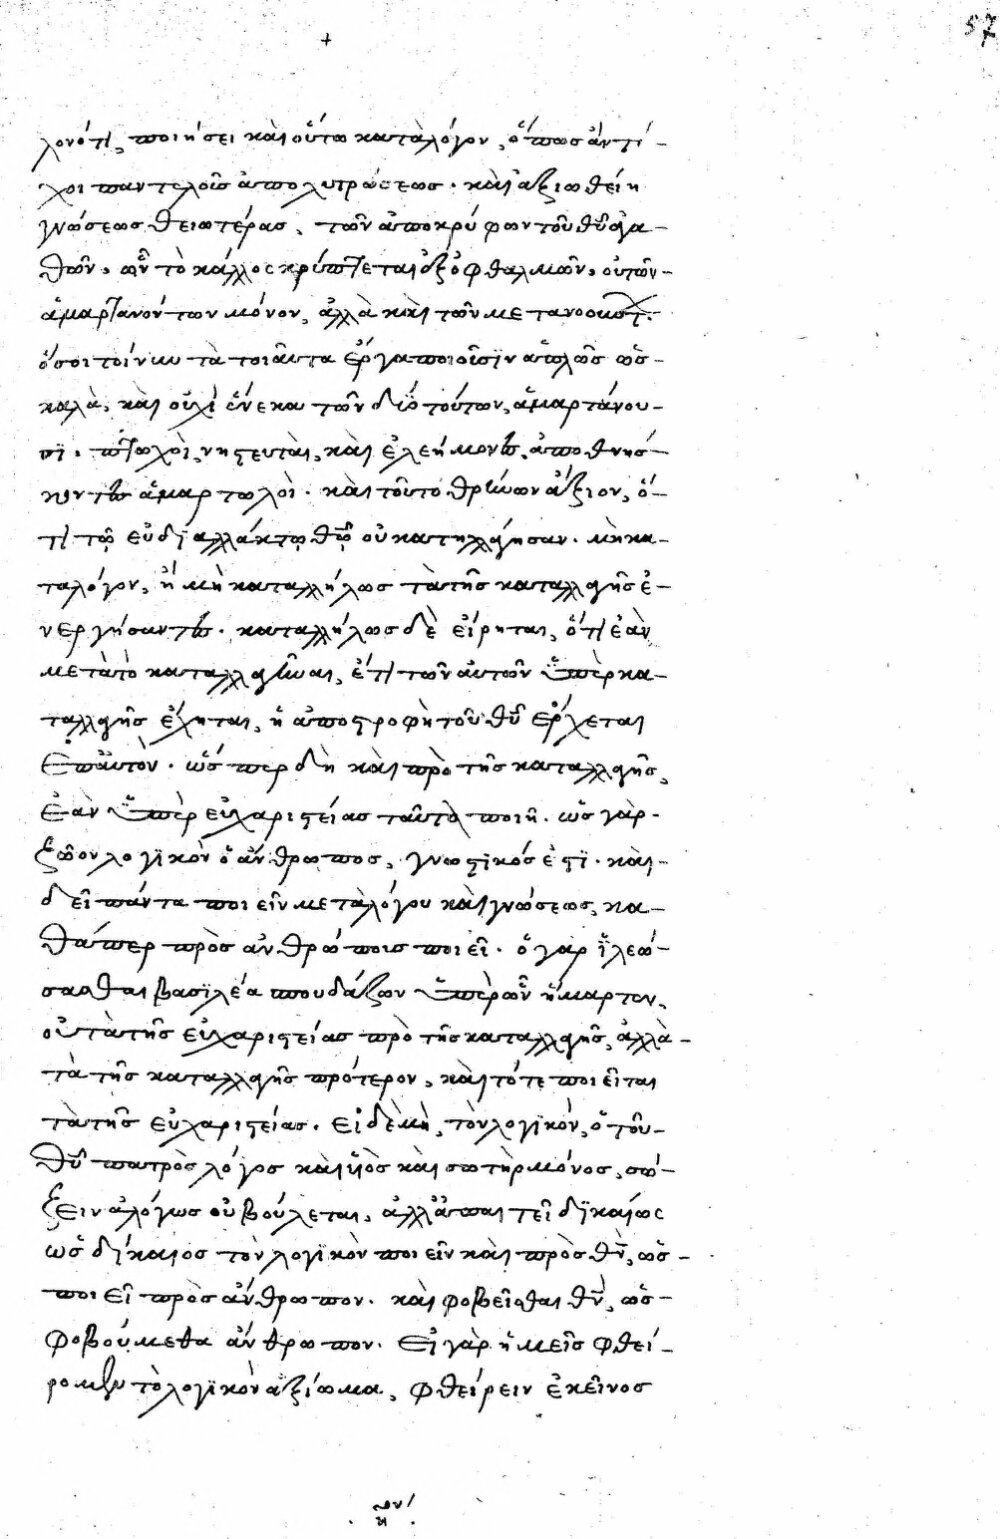 57
+
λονότι, ποιήσει καὶ οὕτω κατὰ λόγον, ὅπως ἀντί-
χοι παντελοῦς ἀπολυτρώσεως. καὶ ἀξιωθείη
γνώσεως θειοτέρας, τῶν ἀποκρύφων τοῦ θῦ ἀγα-
θῶν, ὧν τὸ κάλλος κρύπτεται ἐξ ὀφθαλμῶν, οὐ τῶν-
ἁμαρτανόντων μόνον, ἀλλὰ καὶ τῶν μετανοούντ.
ὅσοι τοίνυν τὰ τοιαῦτα ἔργα ποιοῦσϊν ἁπλῶς ὡς-
καλὰ, καὶ οὐχὶ ἕνεκα τῶν δϊὸ τούτων, ἁμαρτάνου-
σϊ. πτωχοὶ, νηστευταὶ, καὶ ἐλεήμονες, ἀποθνήσ-
κοντες ἁμαρτωλοὶ. καὶ τοῦτο θρήνων ἄξιον, ὅ-
τι τῷ εὐδϊαλλάκτῳ θῷ οὐ κατηλλάγησαν. μὴ κα-
ταλόγον, ἢ μὴ καταλλήλως τὰ τῆς καταλλαγῆς ἐ-
νεργήσαντες. καταλλήλως δὲ εἴρηται, ὅτι ἐὰν
μετὰ τὸ καταλλαγῆναι, ἔτι τῶν αὐτῶν ὑπὲρ κα-
ταλλαγῆς ἔχηται, ἡ ἀποστροφὴ τοῦ θῦ ἔρχεται
ἐπ' αὐτὸν. ὥσπερ δὴ καὶ πρὸ τῆς καταλλαγῆς,
ἐὰν ὑπὲρ εὐχαριστείας ταῦτὰ ποιῆ. ὡς γὰρ-
ζῶον λογϊκὸν ὁ ἄνθρωπος, γνωστϊκός ἐστϊ. καὶ-
δεῖ πάντα ποιεῖν μετὰ λόγου καὶ γνώσεως, κα-
θάπερ πρὸς ἀνθρώποις ποιεῖ. ὁ γὰρ ἵλεώ-
σασθαι βασϊλέα σπουδάζων ὑπὲρ ὧν ἥμαρτεν,
οὐ τὰ τῆς εὐχαριστείας πρὸ τῆς καταλλαγῆς, ἀλλὰ-
τὰ τῆς καταλλαγῆς πρότερον, καὶ τότε ποιεῖται
τὰ τῆς εὐχαριστείας. εἰ δὲ μὴ, τὸν λογϊκόν, ὁ τοῦ-
θῦ πατρὸς λόγος καὶ ὑϊὸς καὶ σωτὴρ μόνος, σώ-
ζειν ἀλόγως οὐ βούλεται, ἀλλ' ἀπαιτεῖ δϊκαίως
ὡς δίκαιος τὸν λογϊκὸν ποιεῖν καὶ πρὸς θν, ὡς-
ποιεῖ πρὸς ἄνθρωπον. καὶ φοβεῖσθαι θν, ὡς-
φοβούμεθα ἄνθρωπον. εἰ γὰρ ἡμεῖς φθεί-
ρομεν τὸ λογϊκὸν ἀξίωμα, φθείρειν ἐκεῖνος